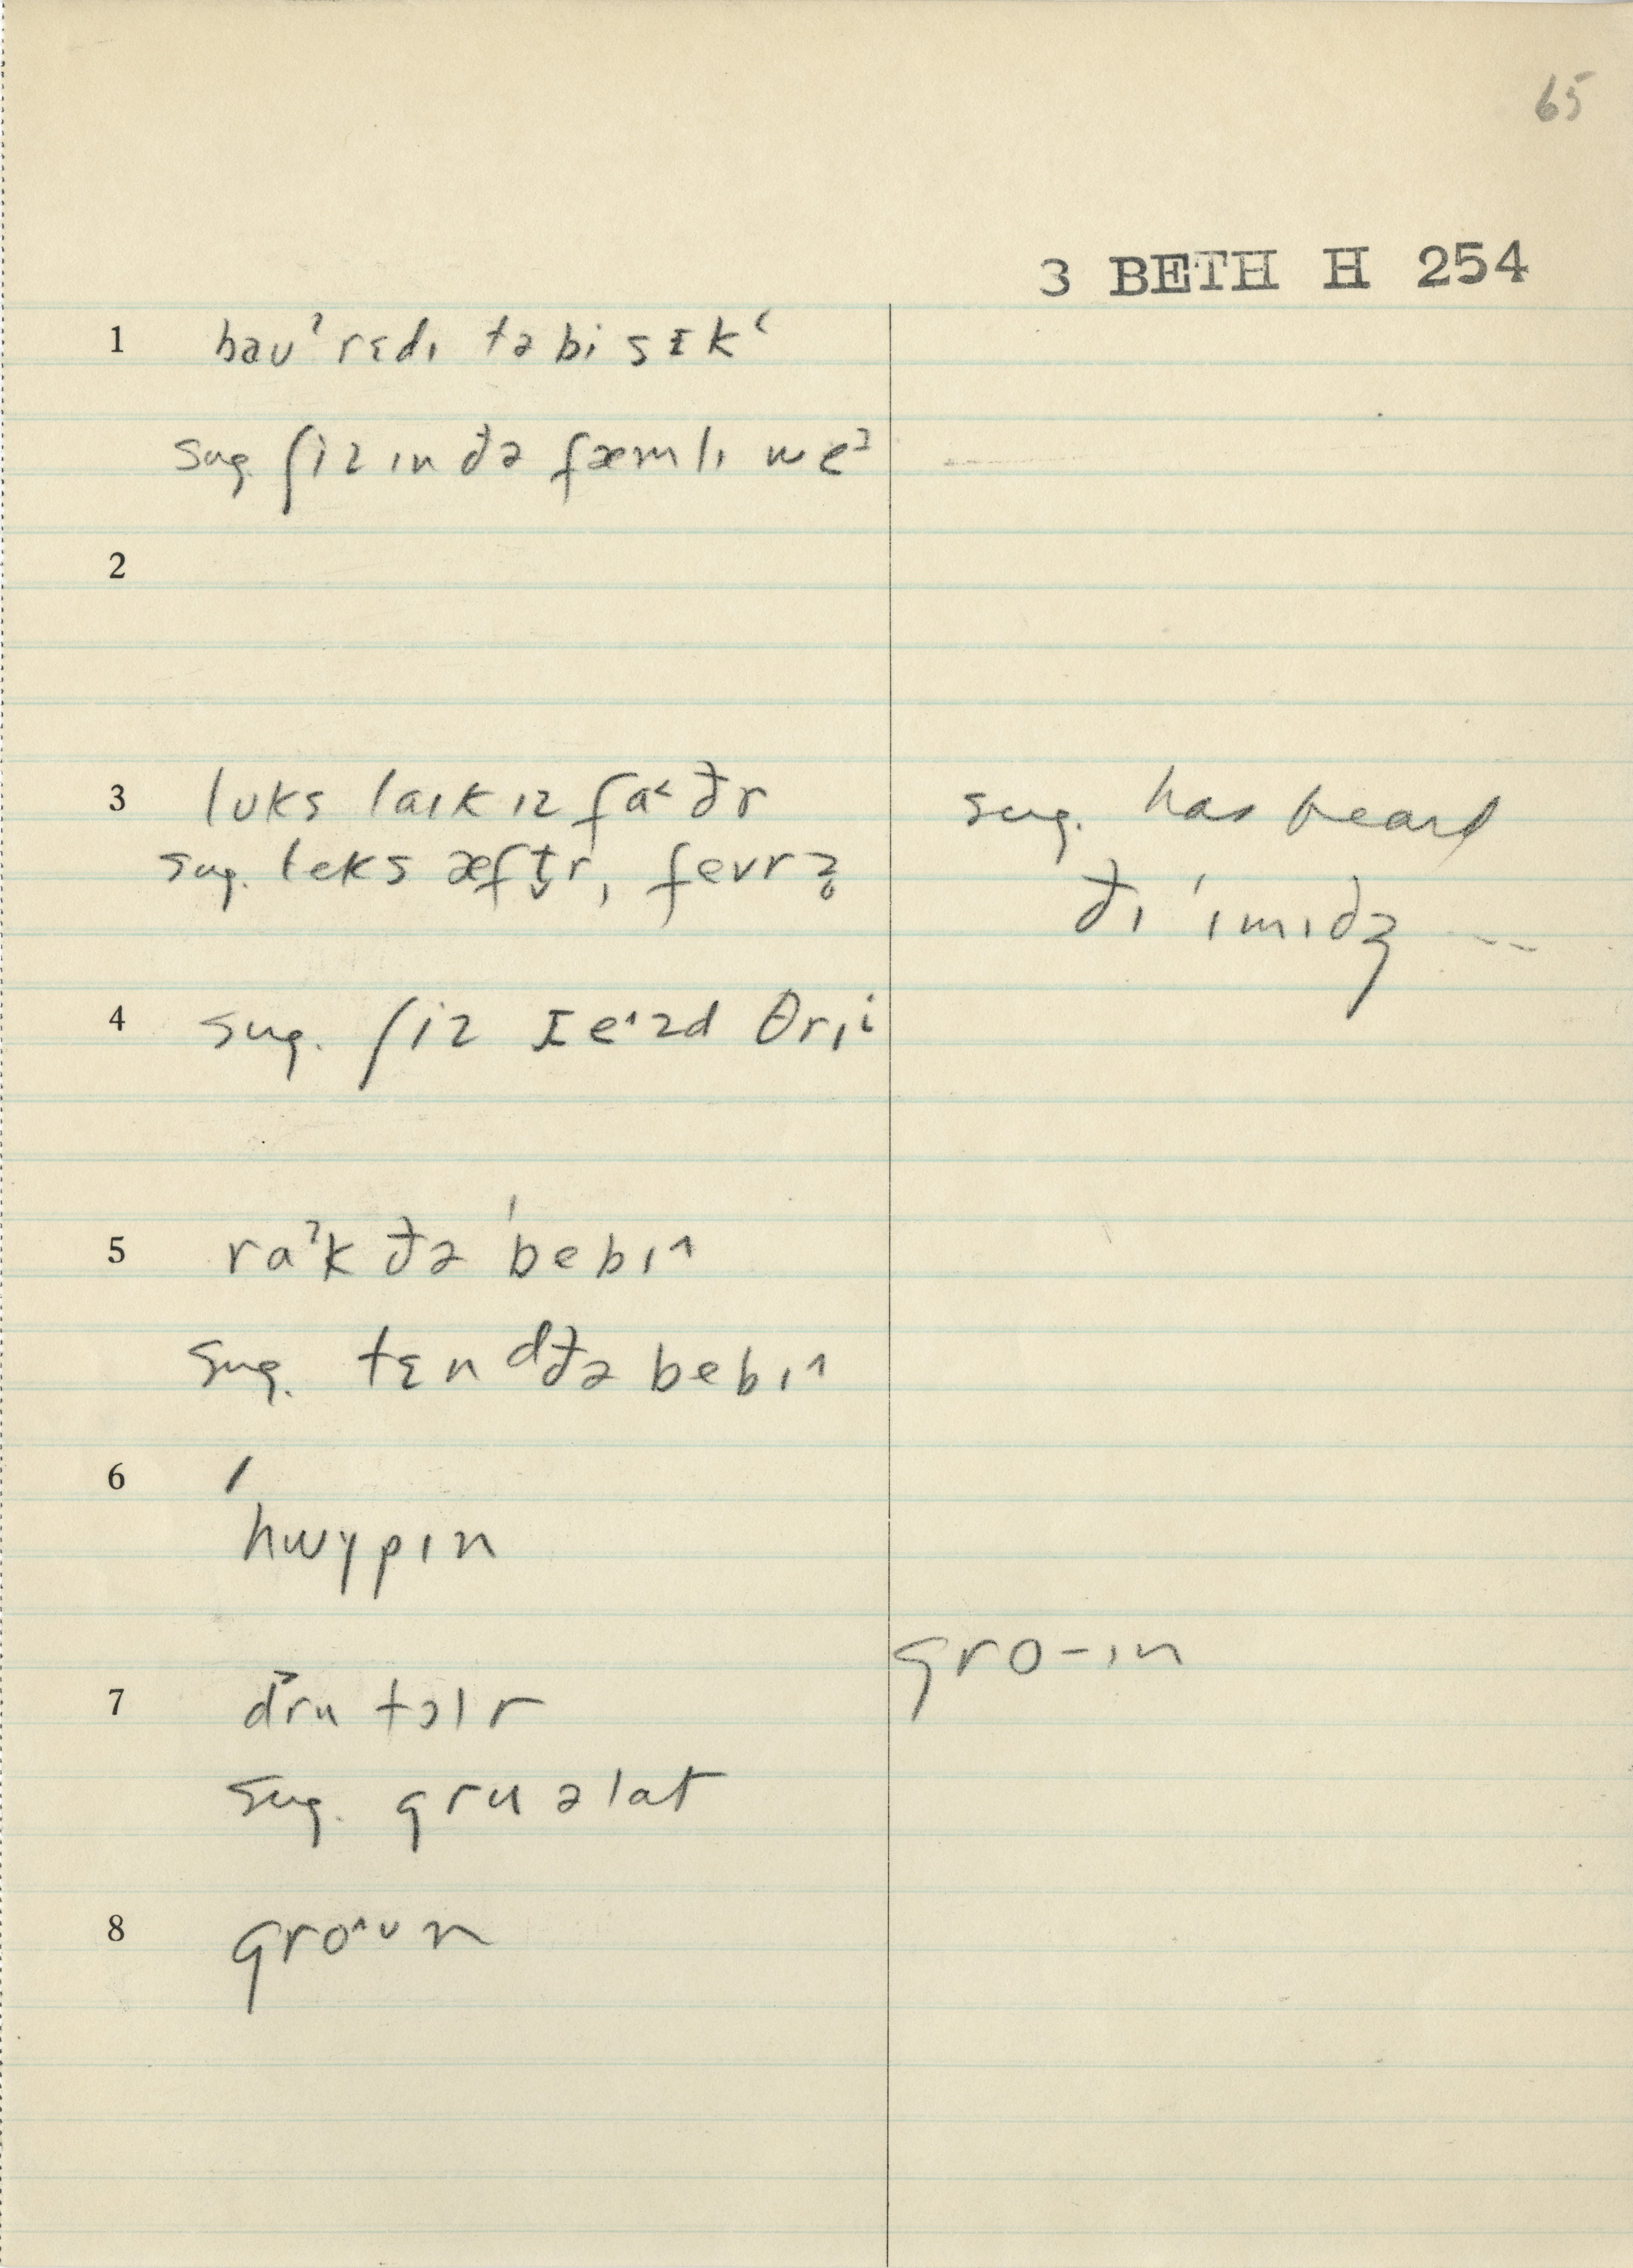 65
3 BETH H 254
1 baʊˀ rɛdɪ tə bi sɪkʿ
sug. ʃiz ɪn ðə fæmlɪ weˀ
2
3 lʊks laɪk ɪz fa˂ðr
sug. teks æft̬r, fevrz̥
sug. has heard
ðɪ ˈɪmɪdʒ ---
4 sug. ʃiz ɪ e^zd θrɪⁱ
5 raˀk ðə ˈbebɪ^
sug. tɛnᵈðə bebɪ^
6 /
hwɤpɪn
gro-ɪn
7 d͐ru tɔlr
sug. gru ə lat
8 gro^ᴜn